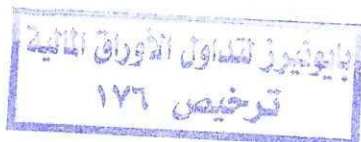 بايونيرز لتداول الأوراق المالية
ترخيص ١٧٦